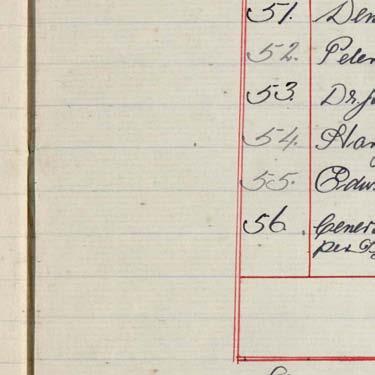 51. Den
52. Peter
53. Dr. J
54. Har
55. Edw
56. Gener
per D